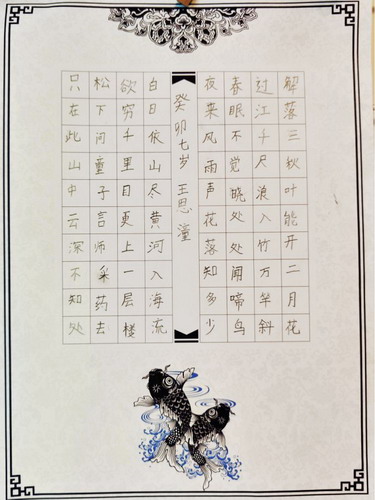 解落三秋叶能开二月花
过江千尺浪入竹万竿斜
春眠不觉晓处处闻啼鸟
夜来风雨声花落知多少
癸卯七岁 王思潼
白日依山尽黄河入海流
欲穷千里目更上一层楼
松下问童子言师采药去
只在此山中云深不知处